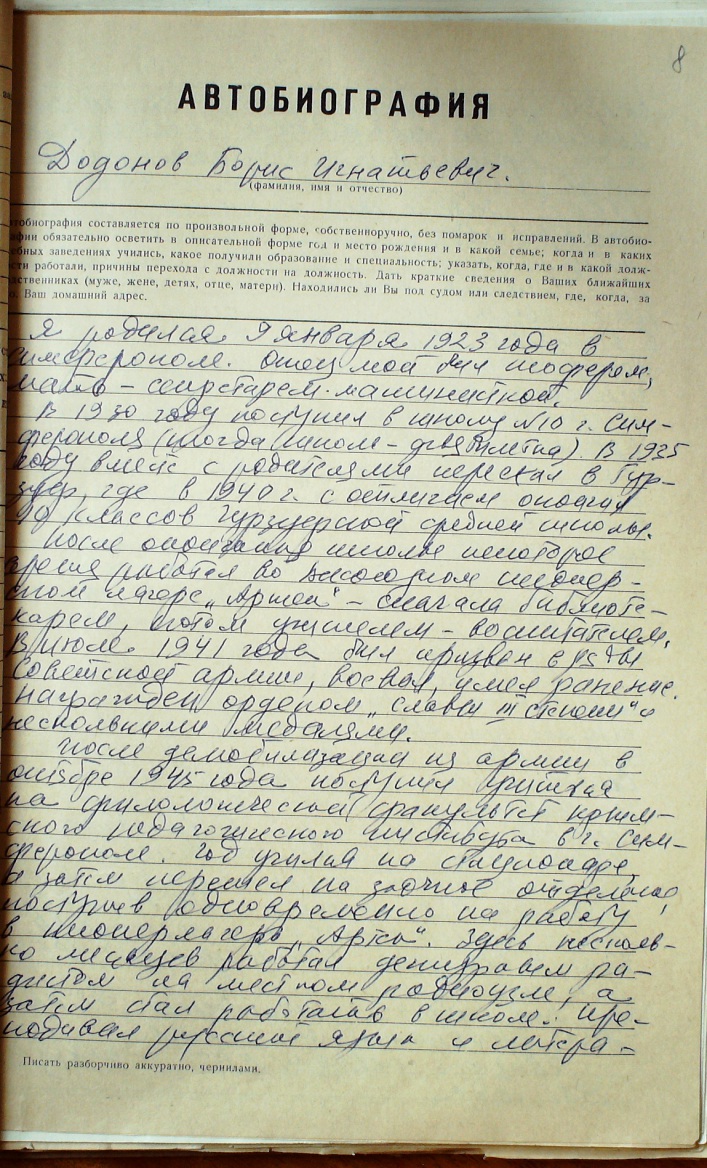 8
АВТОБИОГРАФИЯ
Додонов Борис Игнатьевич.
(фамилия, имя и отчество)
тобиография составляется по произвольной форме, собственноручно, без помарок и исправлений. В автобио-
афии обязательно осветить в описательной форме год и место рождения и в какой семье; когда и в каких
ебных заведениях учились, какое получили образование и специальность; указать, когда, где и в какой долж-
сти работали, причины перехода с должности на должность. Дать краткие сведения о Ваших ближайших
дственниках (муже, жене, детях, отце, матери). Находились ли Вы под судом или следствием, где, когда, за
о. Ваш домашний адрес.
Я родился 9 января 1923 года в
Симферополе. Отец мой был шофером,
мать – секретарем-машинисткой.
В 1930 году поступил в школу №10 г. Сим-
ферополя (тогда школа-девятилетка). В 1935
году вместе с родителями переехал в Гур-
зуф, где в 1940 г. с отличием окончил
10 классов Гурзуфской средней школы.
После окончания школы некоторое
время работал во Всесоюзном пионер-
ском лагере „Артек" – сначала библиоте-
карем, потом учителем-воспитателем.
В июле 1941 года был призван в ряды
Советской армии, воевал, имел ранение.
Награжден орденом „Славы III степени" и
несколькими медалями.
После демобилизации из армии в
октябре 1945 года поступил учиться
на филологический факультет Крым-
ского педагогического института в г. Сим-
ферополе. Год учился на стационаре,
а затем перешел на заочное отделение,
поступив одновременно на работу
в пионерлагерь „Артек". Здесь несколь-
ко месяцев работал дежурным ра-
дистом на местном радиоузле, а
затем стал работать в школе. Пре-
подавал русский язык и литера-
Писать разборчиво аккуратно, чернилами.